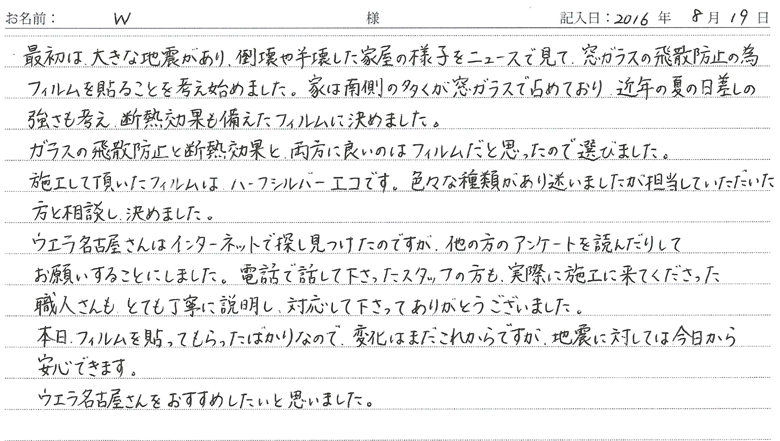 お名前： W 様 記入日：2016年 8月 19日
最初は、大きな地震があり、倒壊や半壊した家屋の様子をニュースで見て、窓ガラスの飛散防止の為
フィルムを貼ることを考え始めました。家は南側の多くが窓ガラスで占めており、近年の夏の日差しの
強さも考え、断熱効果も備えたフィルムに決めました。
ガラスの飛散防止と断熱効果と、両方に良いのはフィルムだと思ったので選びました。
施工して頂いたフィルムは、ハーフシルバーエコです。色々な種類があり迷いましたが担当していただいた
方と相談し、決めました。
ウエラ名古屋さんはインターネットで探し見つけたのですが、他の方のアンケートを読んだりして
お願いすることにしました。電話で話して下さったスタッフの方も、実際に施工に来てくださった
職人さんも、とても丁寧に説明し、対応して下さってありがとうございました。
本日、フィルムを貼ってもらったばかりなので、変化はまだこれからですが、地震に対しては今日から
安心できます。
ウエラ名古屋さんをおすすめしたいと思いました。